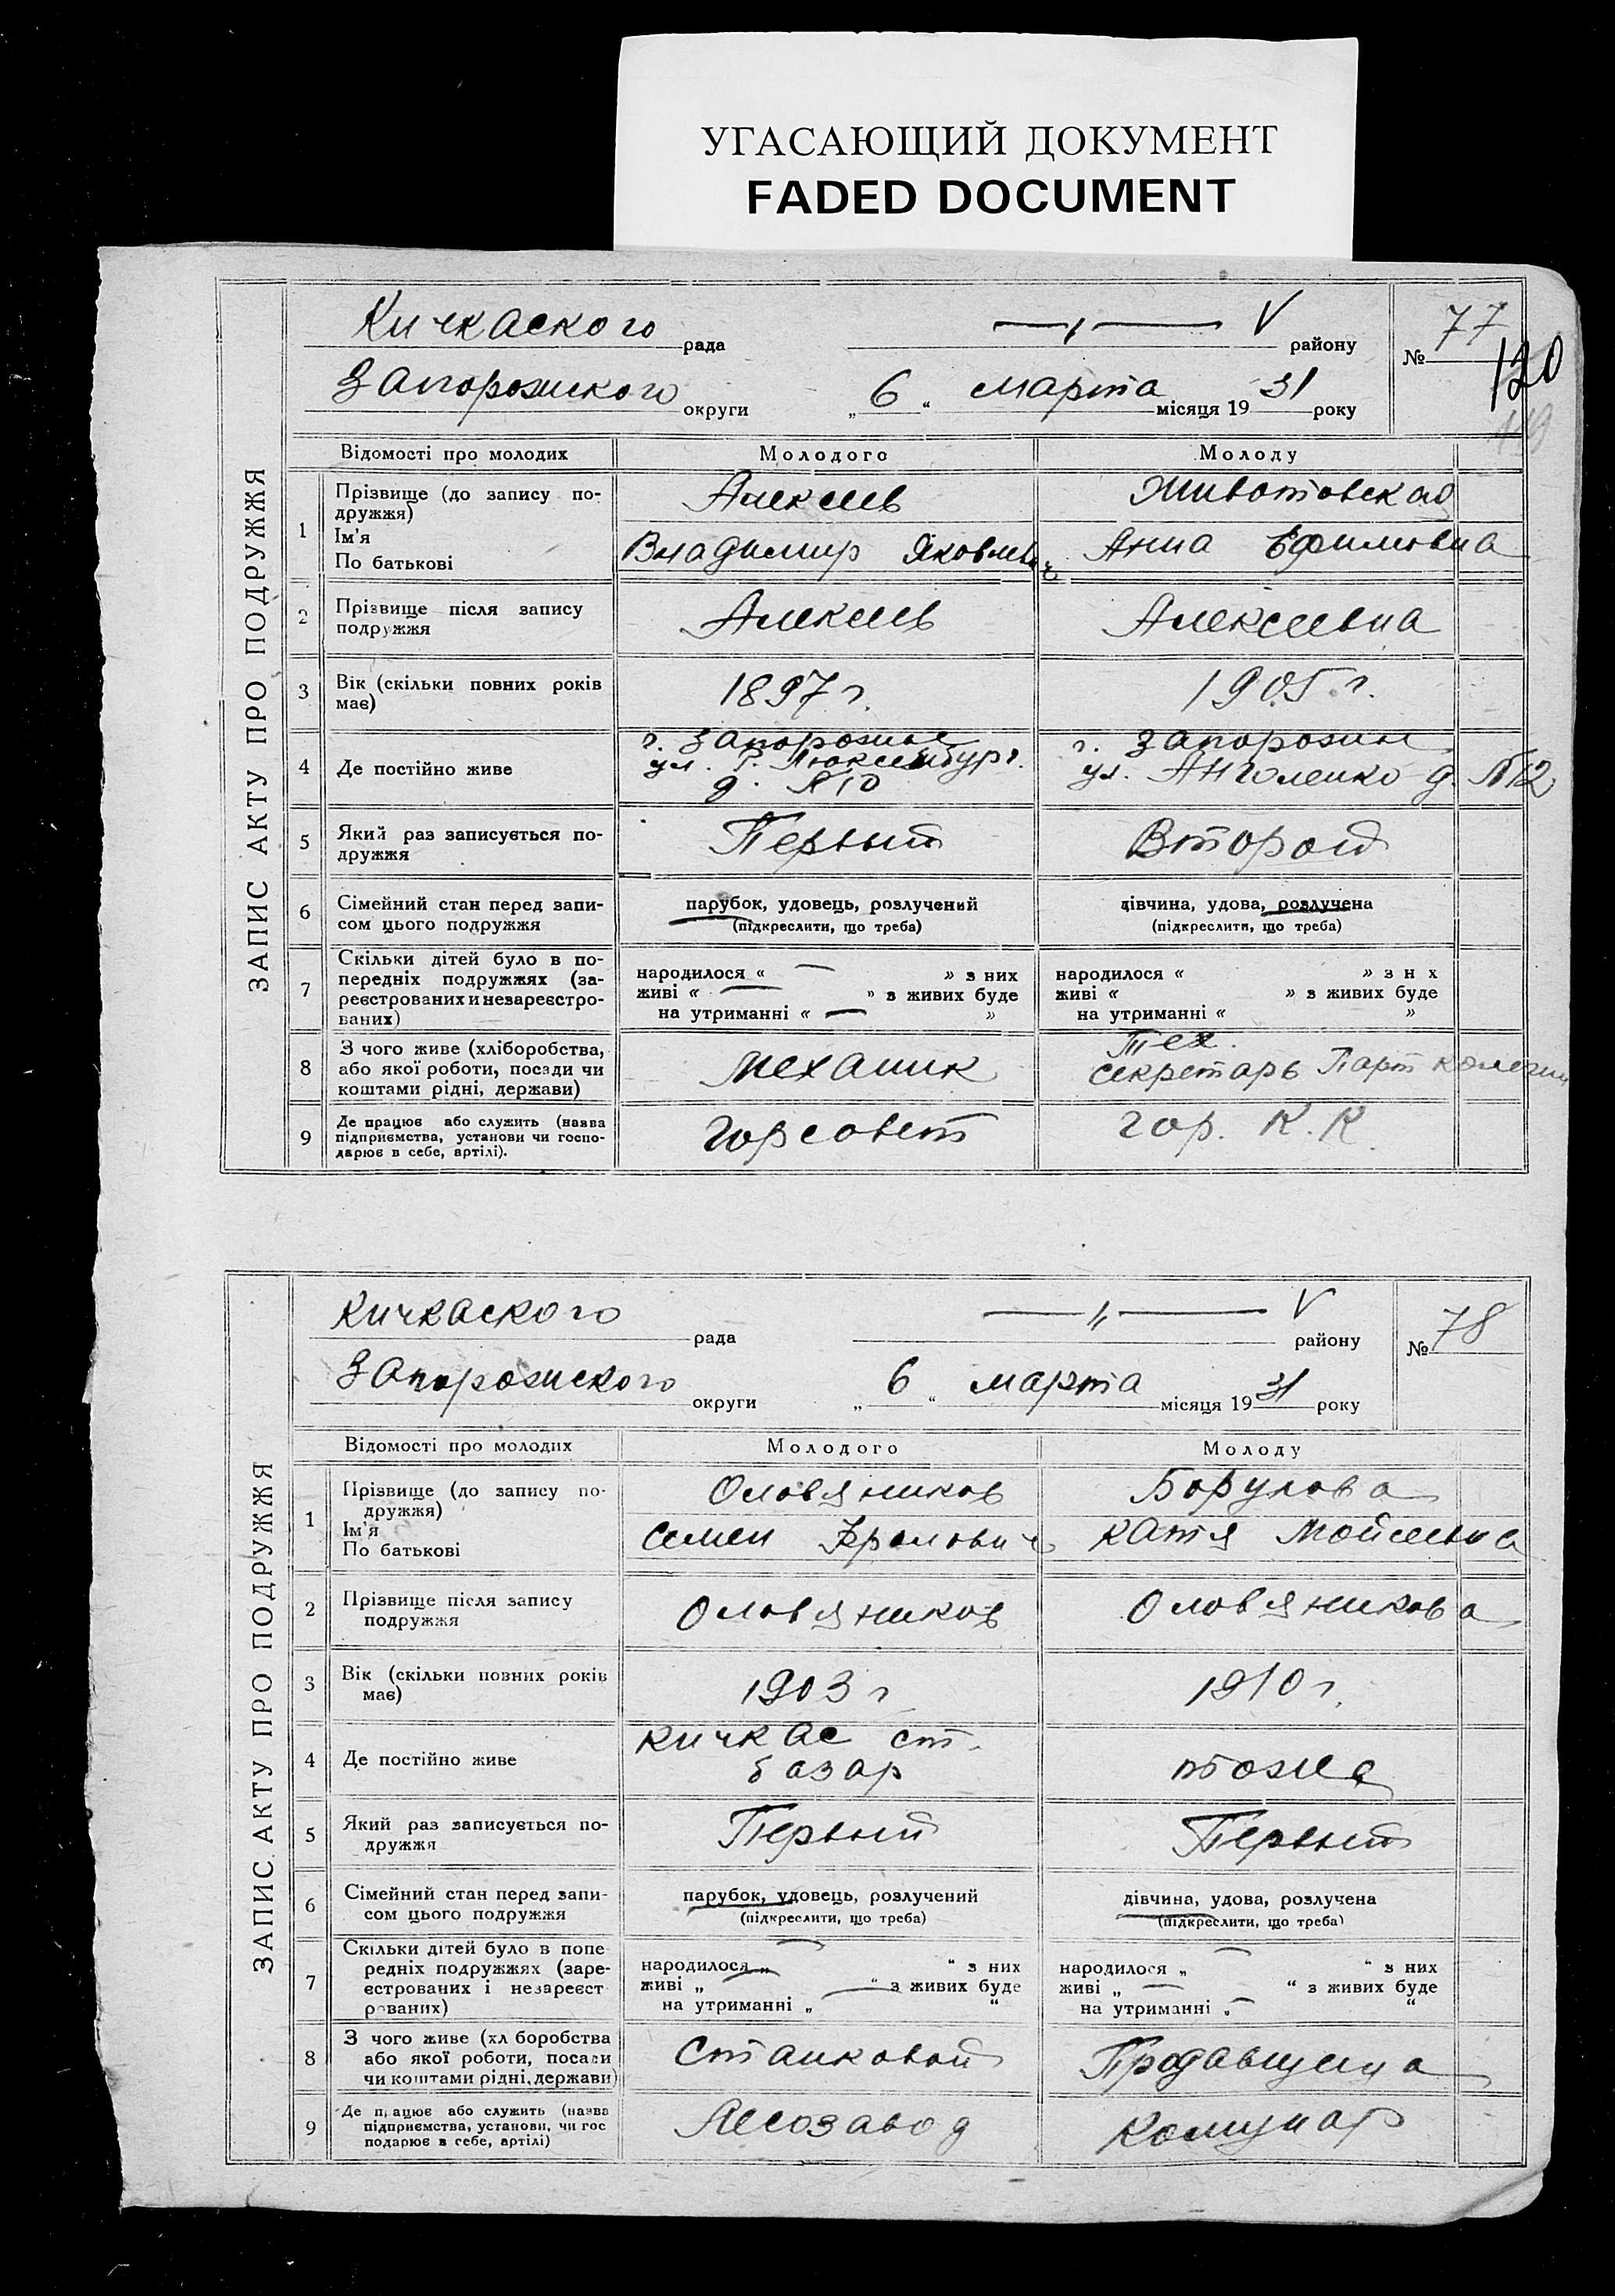 УГАСАЮЩИЙ ДОКУМЕНТ
FADED DOCUMENT
ЗАПИС АКТУ ПРО ПОДРУЖЖЯ
Кичкаского рада
V району
№ 77
120
119
Запорожского округи
„ 6 “ марта місяця 19 31 року
Відомості про молодих
Молодого
Молоду
1
Прізвище (до запису по-
дружжя)
Ім'я
По батькові
Алексеев
Владимир Яковлевич
Животовская
Анна Ефимовна
2
Прізвище після запису
подружжя
Алексеев
Алексеевна
3
Вік (скільки повних років
має)
1897 г.
1905 г.
4
Де постійно живе
г. Запорожье
ул. Р. Люксембург.
д. №10
г. Запорожье
ул. Анголенко д. №12
5
Який раз записується по-
дружжя
Первый
Второй
6
Сімейний стан перед запи-
сом цього подружжя
парубок, удовець, розлучений
(підкреслити, що треба)
дівчина, удова, розлучена
(підкреслити, що треба)
7
Скільки дітей було в по-
передніх подружжях (за-
реєстрованих и незареєстро-
ваних)
народилося « — » з них
живі « — » з живих буде
на утриманні « — »
народилося « » з н х
живі « » з живих буде
на утриманні « »
8
З чого живе (хліборобства,
або якої роботи, посади чи
коштами рідні, держави)
Механик
Тех.
секретарь Парт колегии
9
Де працює або служить (назва
підприємства, установи чи госпо-
дарює в себе, артілі).
Горсовет
Гор. К. К.
ЗАПИС АКТУ ПРО ПОДРУЖЖЯ
Кичкаского рада
V району
№ 78
Запорожского округи
„ 6 “ марта місяця 19 31 року
Відомості про молодих
Молодого
Молоду
1
Прізвище (до запису по-
дружжя)
Ім'я
По батькові
Оловяников
Семен
Борулова
Катя Мойсеевна
2
Прізвище після запису
подружжя
Оловяников
Оловяникова
3
Вік (скільки повних років
має)
1903 г
1910 г.
4
Де постійно живе
Кичкас ст.
базар
тоже
5
Який раз записується по-
дружжя
Первый
Первый
6
Сімейний стан перед запи-
сом цього подружжя
парубок, удовець, розлучений
(підкреслити, що треба)
дівчина, удова, розлучена
(підкреслити, що треба)
7
Скільки дітей було в попе
редніх подружжях (заре-
єстрованих і незареєст
рованих)
народилося „ — “ з них
живі „ — “ з живих буде
на утриманні „ “
народилося „ — “ з них
живі „ — “ з живих буде
на утриманні „ — “
8
З чого живе (хл боробства
або якої роботи, посади
чи коштами рідні, держави)
Станковой
Продавщица
9
Де працює або служить (назва
підприємства, установи, чи гос
подарює в себе, артілі)
Лесозавод
Комунар